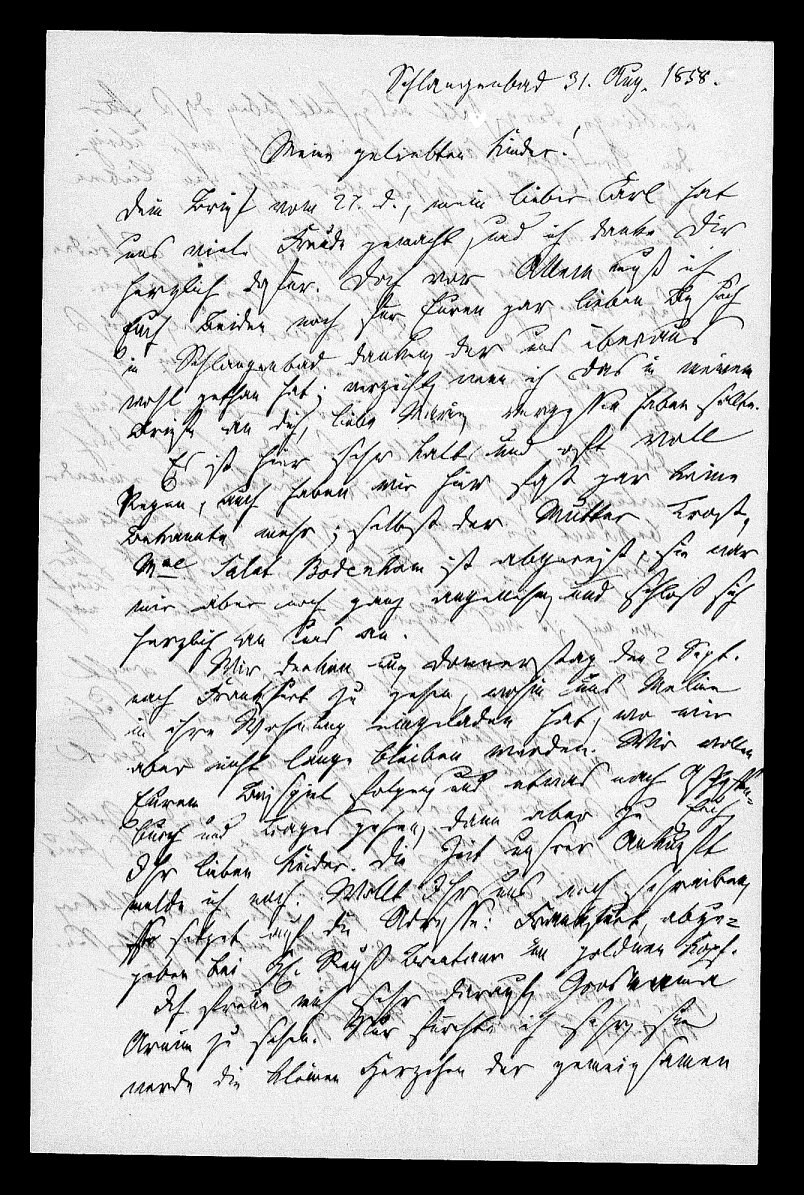 Schlangenbad 31. Aug. 1858.
Meine geliebten Kinder!
Dein Brief vom 27. d., mein lieber Carl hat
uns viele Freude gemacht, und ich danke Dir
herzlich dafür. Doch vor Allem muß ich
Euch Beiden noch für Euren gar lieben Besuch
in Schlangenbad danken, der uns überaus
wohl gethan hat; verzeiht, wenn ich das in meinem
Briefe an dich, liebe vergessen haben sollte.
Es ist hier sehr kalt und oft voll
Regen, auch haben wir hier fast gar keine
Bekannte mehr; selbst der Mutter Trost,
Mme Bodenham ist abgereist, sie war
mir aber noch ganz angenehm und schloß sich
herzlich an uns an.
Wir denken nun Donnerstag den 2 Sept.
nach Frankfurt zu gehen, wohin uns Meline
in ihre Wohnung eingeladen hat, wo wir
aber nicht lange bleiben werden. Wir wollen
Eurem Beispiel folgen und etwas nach Aschaffen-
burg und Trages gehen, dann aber zu Euch,
Ihr lieben Kinder. Die Zeit unsrer Ankunft
melde ich noch. Wollt Ihr uns noch schreiben,
so setzet auf die Adresse: Frankfurt, abzu-
geben bei Brentano im goldnen Kopf.
Ich freue mich sehr darauf, Grosmama
Arnim zu sehen. Nur fürchte ich sehr, sie
werde die kleinen Herzchen der gemeinsamen